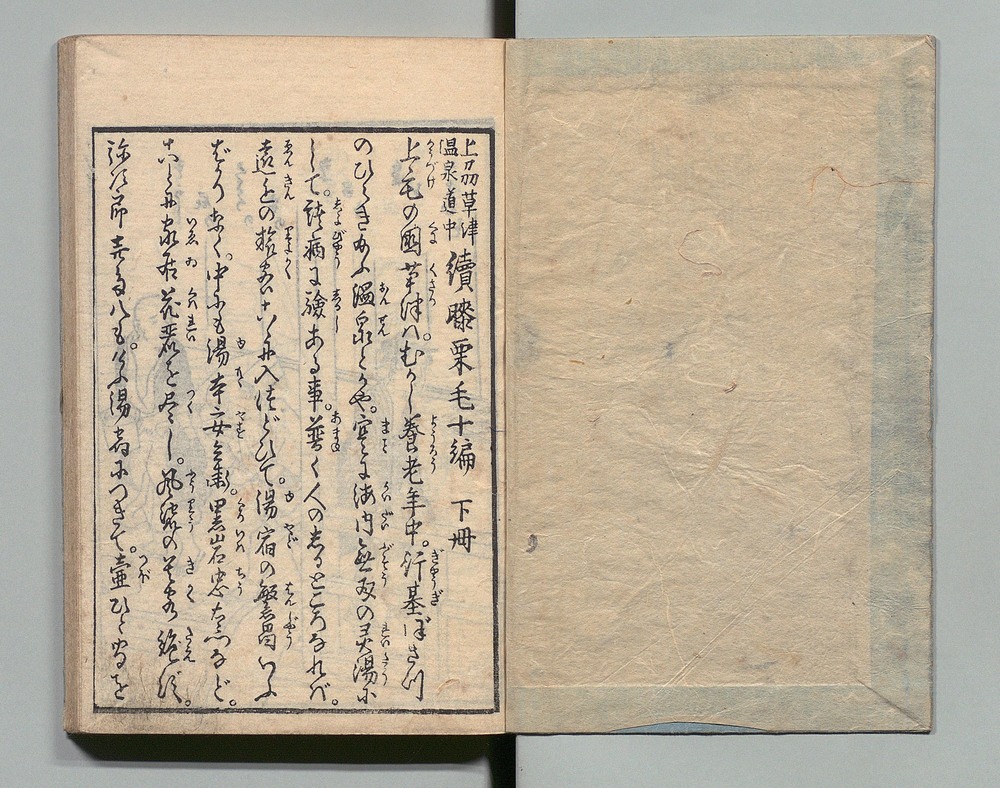 上刕草津
温泉道中
續膝栗毛十編 下冊
上毛の國草津ハ。むかし養老年中。行基ぼさつ
のひらき給ふ温泉とかや。寔に海内無双の灵湯に
して。諸病に驗ある事。普く人のしるところなれバ。
遠近の旅客こゝに入つどひて。湯宿の繁昌いふ
ばかりなく。中にも湯本安兵衛。黒岩忠右衛門など。
こゝに家居花麗を尽し。風流の貴客絶ず。
弥次郎喜多八も。此湯宿につきて。壷ひとつを